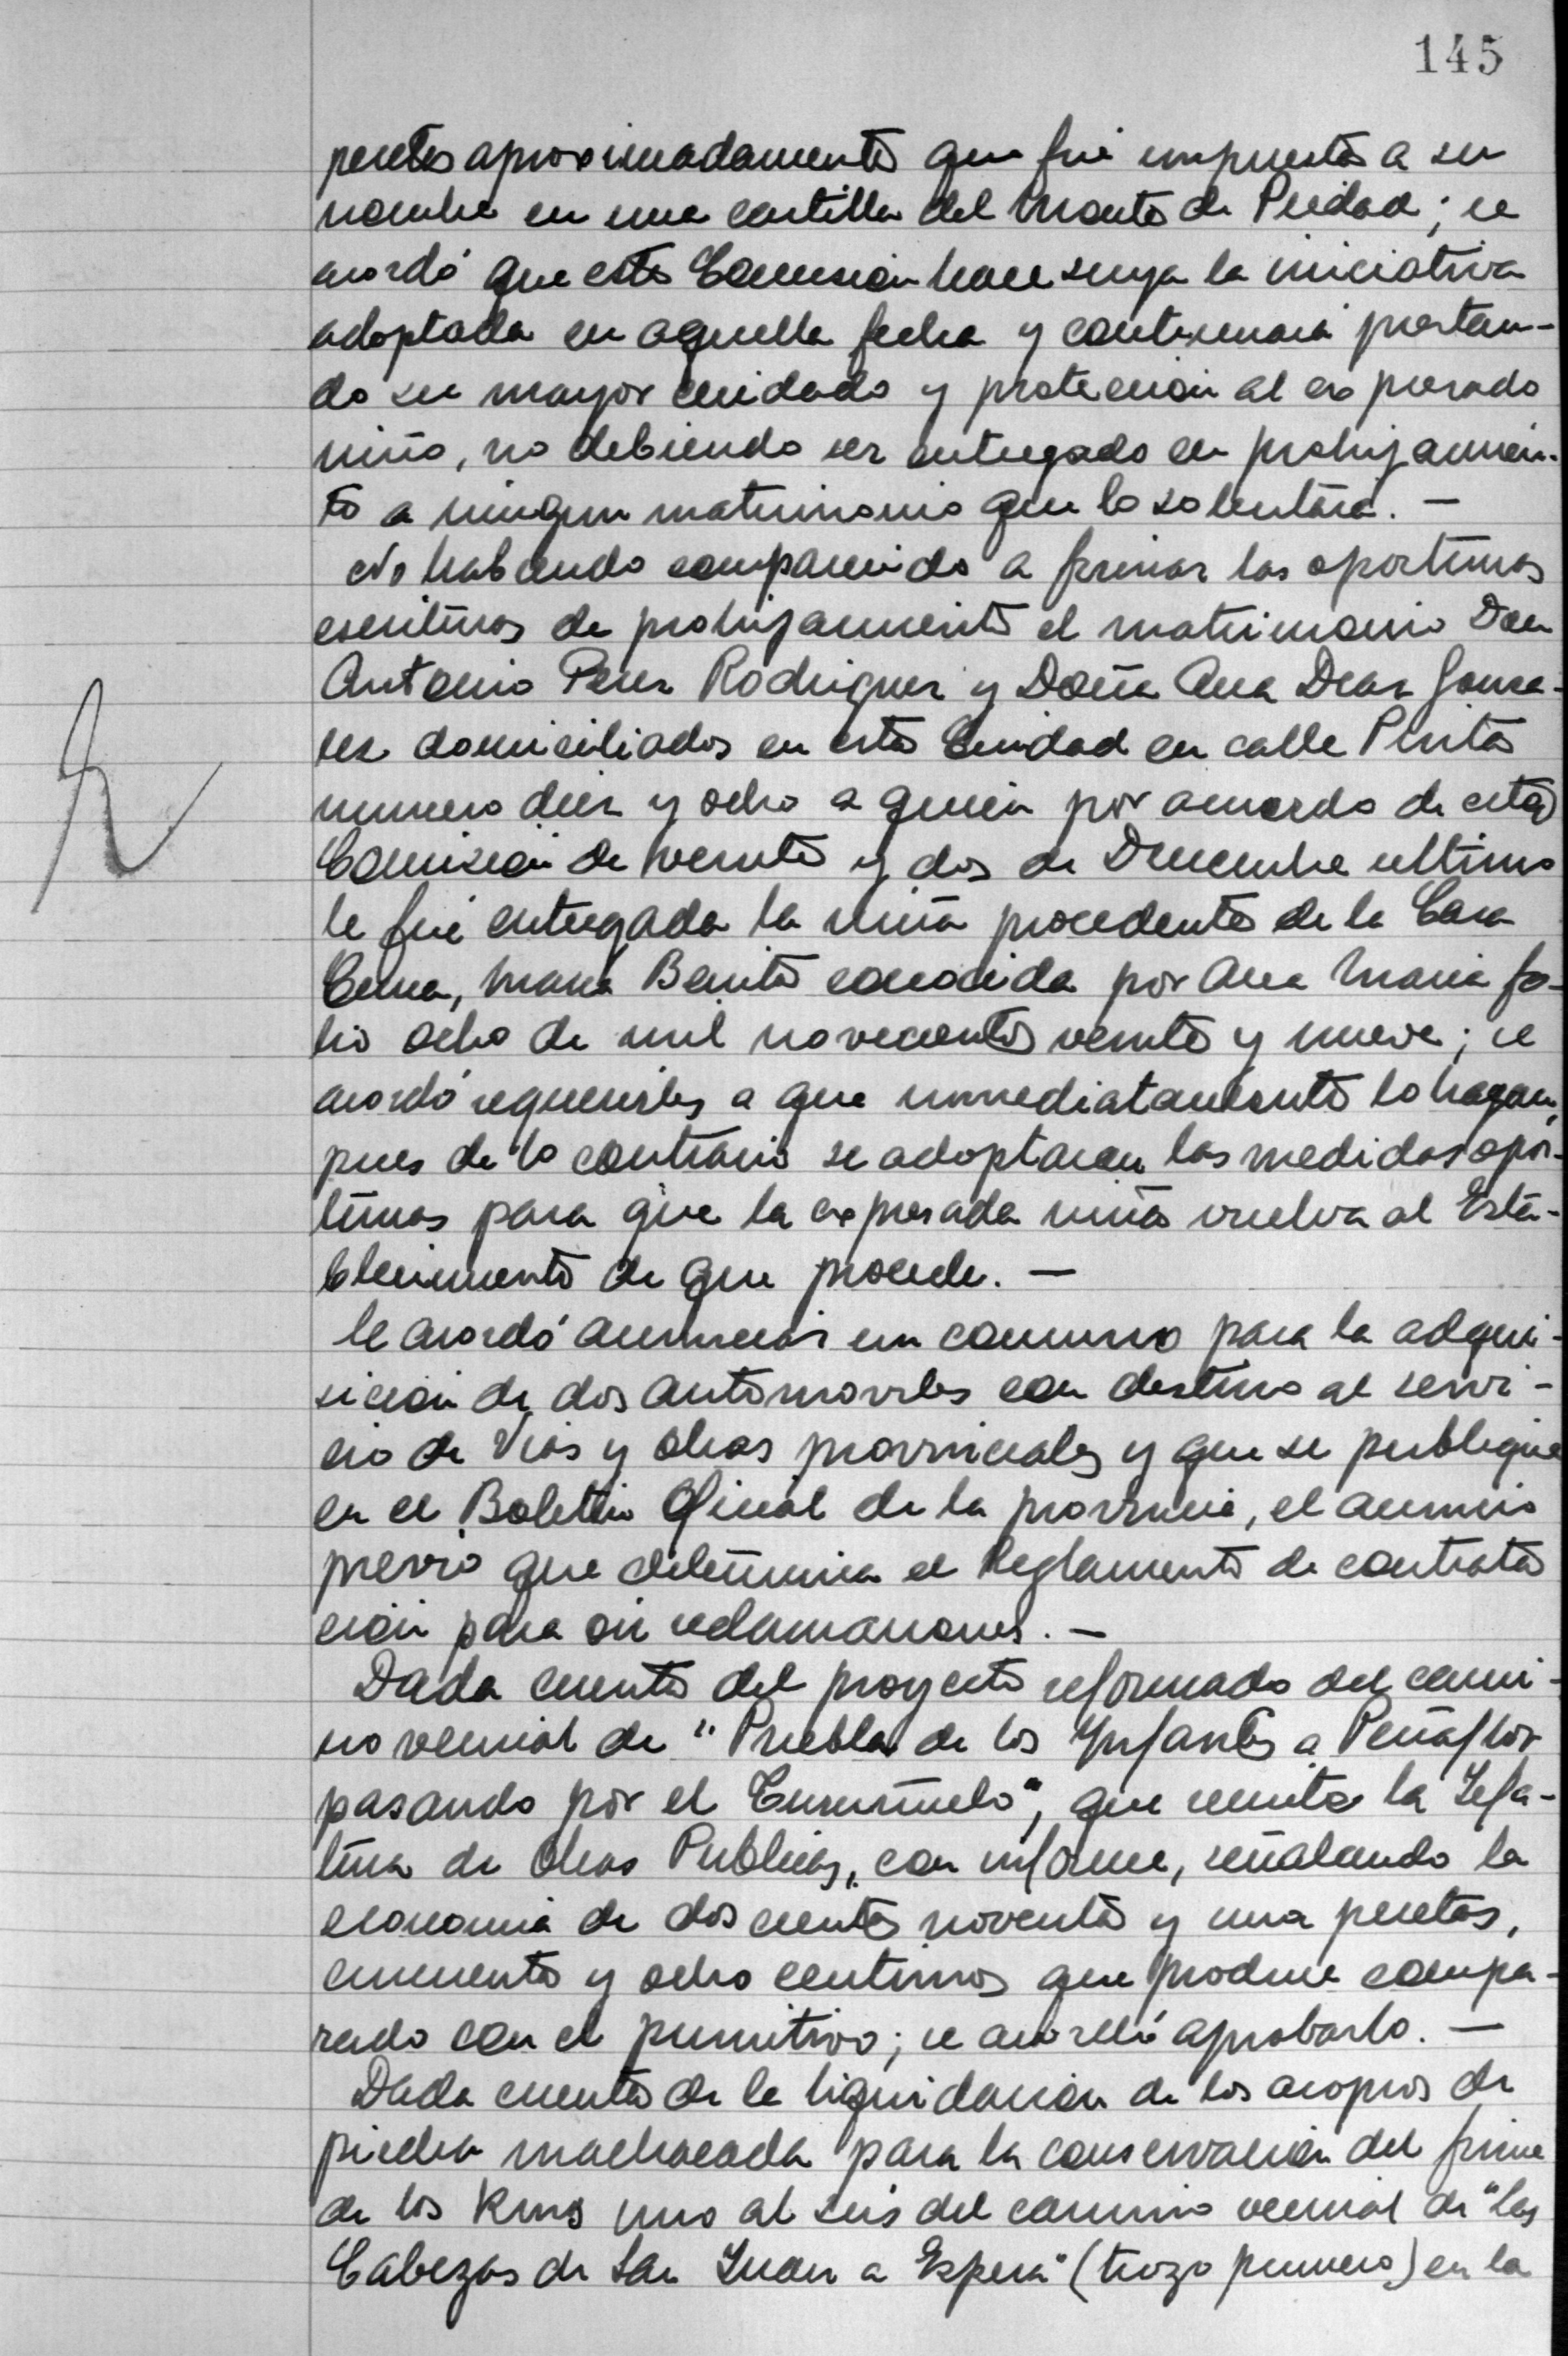 145
pesetas aproximadamente que fué impuesta a su
nombre en una cartilla del Monte de Piedad; se
acordó que esta Comision hace suya la iniciativa
adoptada en aquella fecha y continuará prestan-
do su mayor cuidado y protección al expresado
niño, no debiendo ser entregado en prohijamien-
to a ningun matrimonio que lo solicitara. —
No habiendo comparecido a firmar las oportunas
escrituras de prohijamiento el matrimonio Don
Antonio Perez Rodriguez y Doña Ana Diaz Gonza-
lez domiciliados en esta Ciudad en calle
numero diez y ocho a quien por acuerdo de esta
Comision de veinte y dos de Diciembre ultimo
le fué entregada la niña procedente de la Casa
Cuna, Maria Benita conocida por Ana Maria fo-
lio ocho de mil novecientos veinte y nueve; se
acordó requerirles a que inmediatamente lo hagan,
pues de lo contrario se adoptaran las medidas opor-
tunas para que la expresada niña vuelva al Esta-
blecimiento de que procede. —
Se acordó anunciar un concurso para la adqui-
sicion de dos automoviles con destino al servi-
cio de Vias y Obras provinciales y que se publique
en el Boletin Oficial de la provincia, el anuncio
previo que determina el Reglamento de contrata
ción para oir reclamaciones. —
Dada cuenta del proyecto reformado del cami-
no vecinal de "Puebla de los Ynfantes a Peñaflor
pasando por el", que remite la Jefa-
tura de Obras Publicas, con informe, señalando la
economia de doscientas noventa y una pesetas,
cincuenta y ocho centimos que produce compa-
rado con el primitivo; se acordó aprobarlo. —
Dada cuenta de la liquidacion de los acopios de
piedra machacada para la conservacion del firme
de los Kms uno al seis del camino vecinal de "Las
Cabezas de San Juan a Espera" (trozo primero) en la